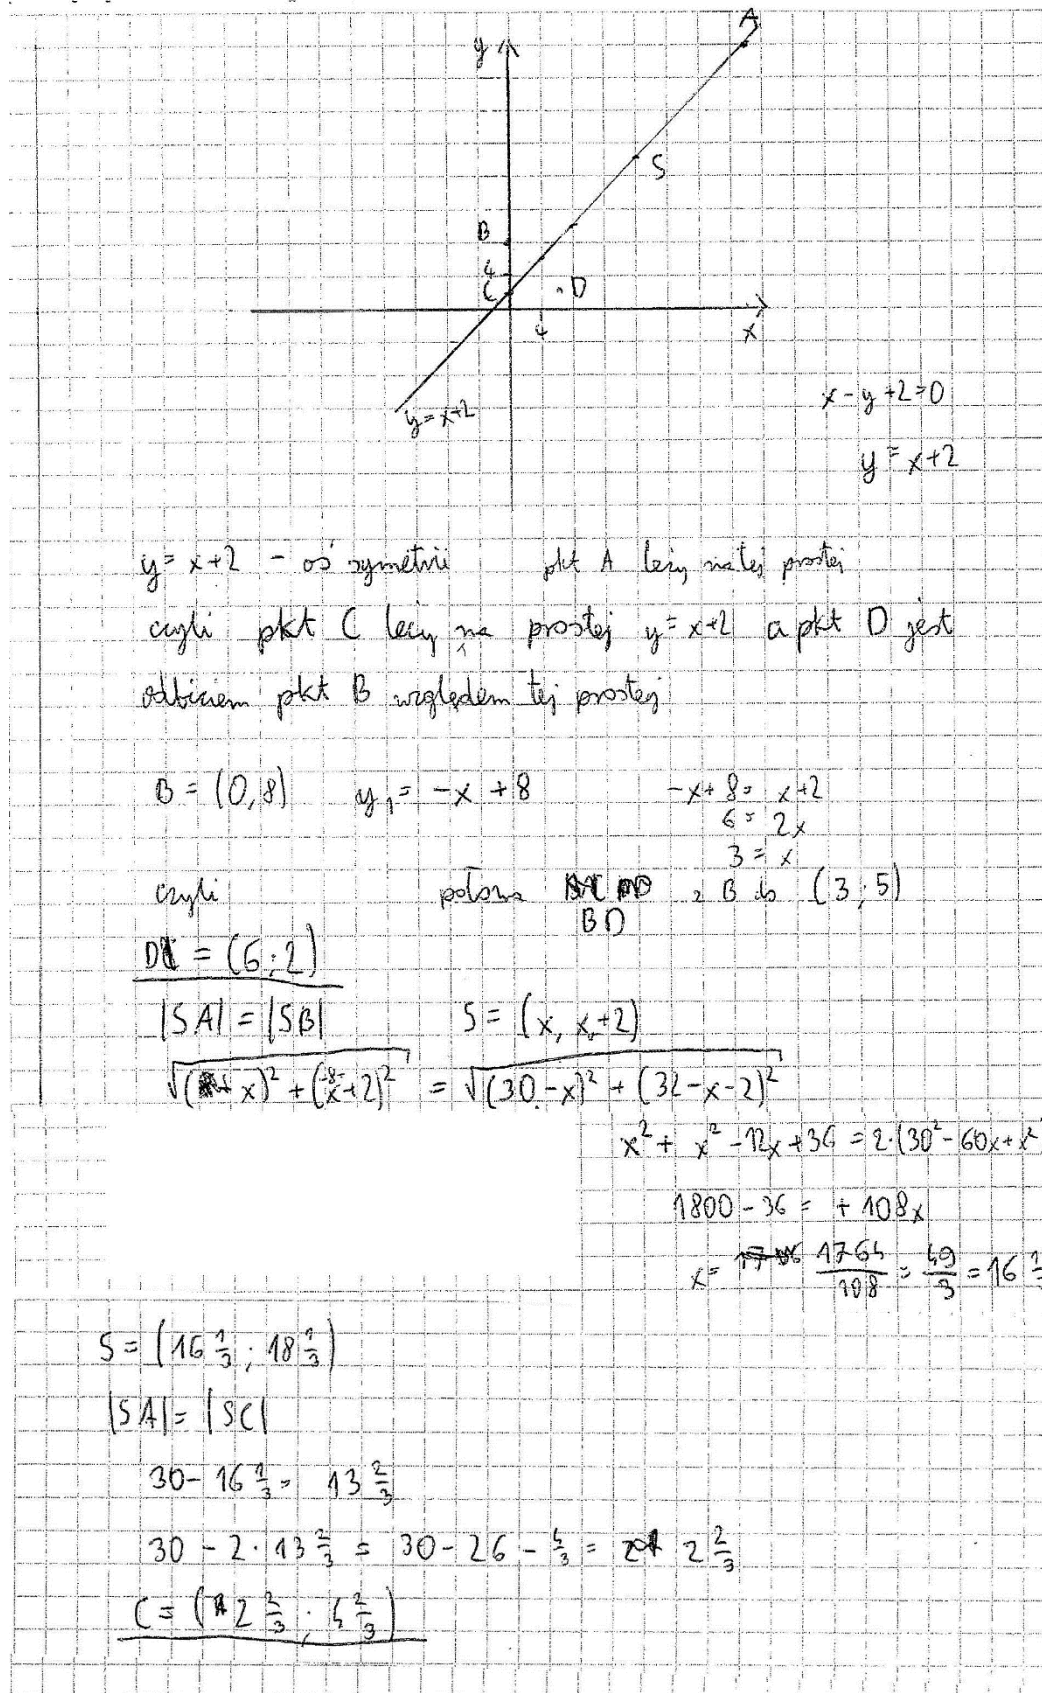 A
y
S
B
4
C
D
4
x
y=x+2
x-y+2=0
y=x+2
y=x+2 - oś symetrii pkt A leży na tej prostej
czyli pkt C leży na prostej y=x+2 a pkt D jest
odbiciem pkt B względem tej prostej
B=(0,8) y₁=-x+8 -x+8=x+2
6=2x
3=x
czyli połowa z B do (3;5)
BD
D=(6;2)
|SA|=|SB| S=(x, x+2)
√((x)²+(-8-x+2)²) = √((30-x)²+(32-x-2)²)
x²+x²-12x+36=2·(30²-60x+x²
1800-36=+108x
x= 1764/108 = 49/3 = 16 1/3
S=(16 1/3; 18 1/3)
|SA|=|SC|
30-16 1/3= 13 2/3
30-2·13 2/3 = 30-26-4/3= 2 2/3
C=(2 2/3; 4 2/3)